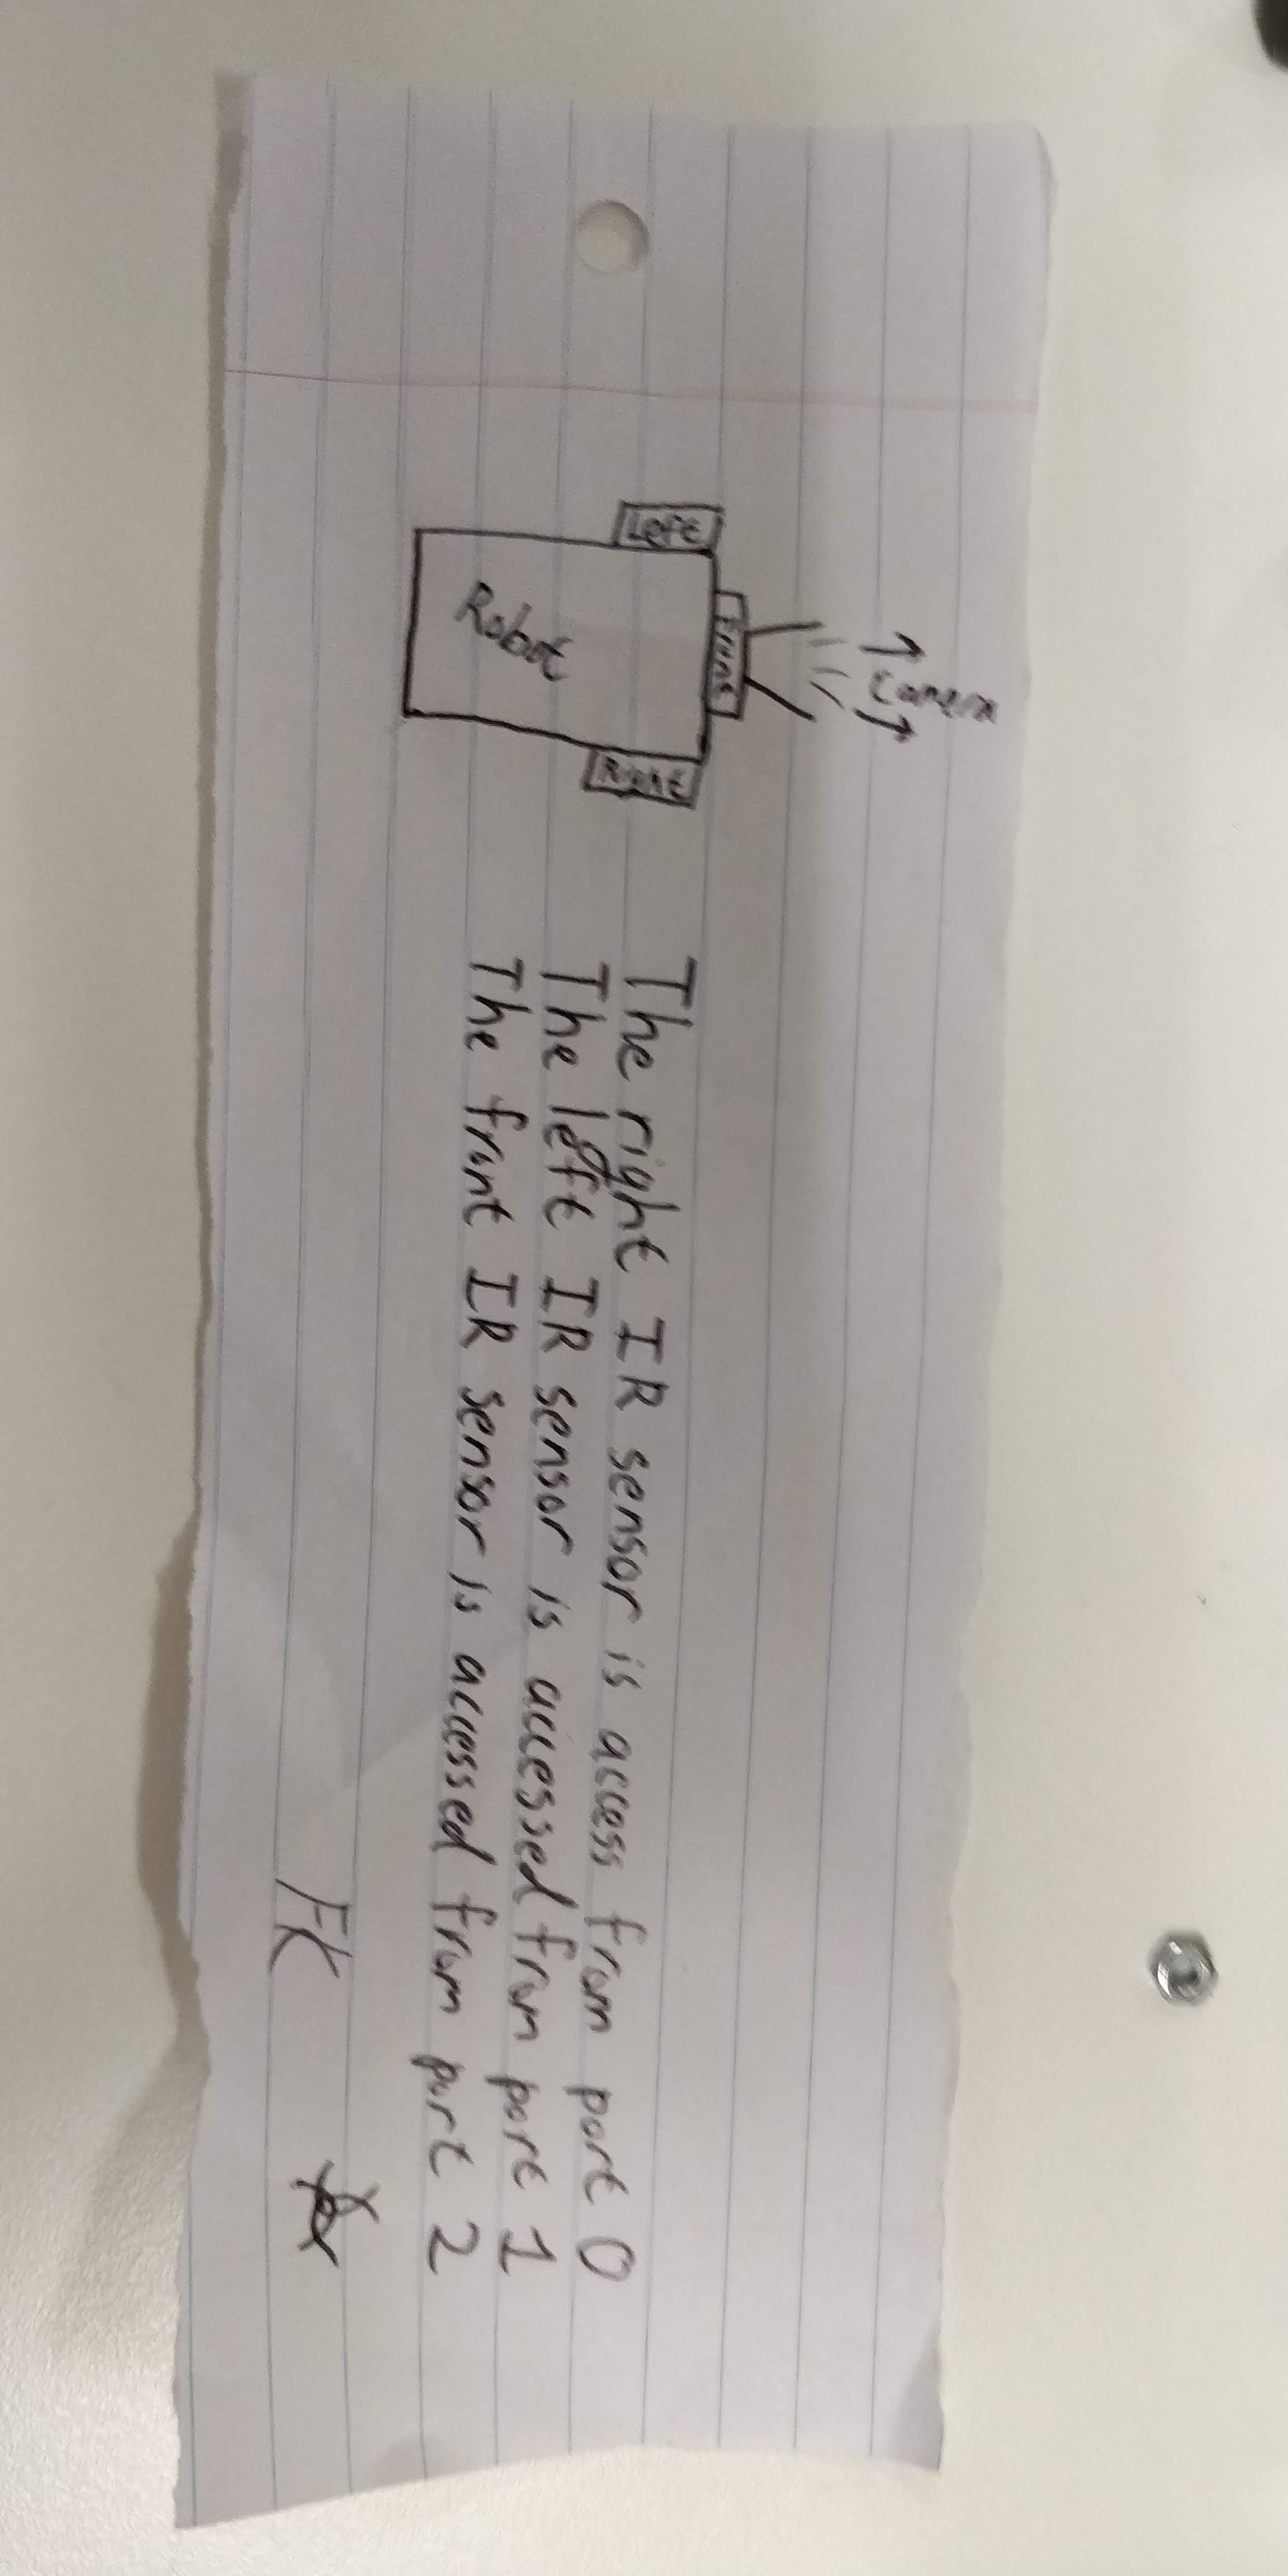 Camera
Left
Front
Right
Robot
The right IR sensor is access from port 0
The left IR sensor is accessed from port 1
The front IR sensor is accessed from port 2